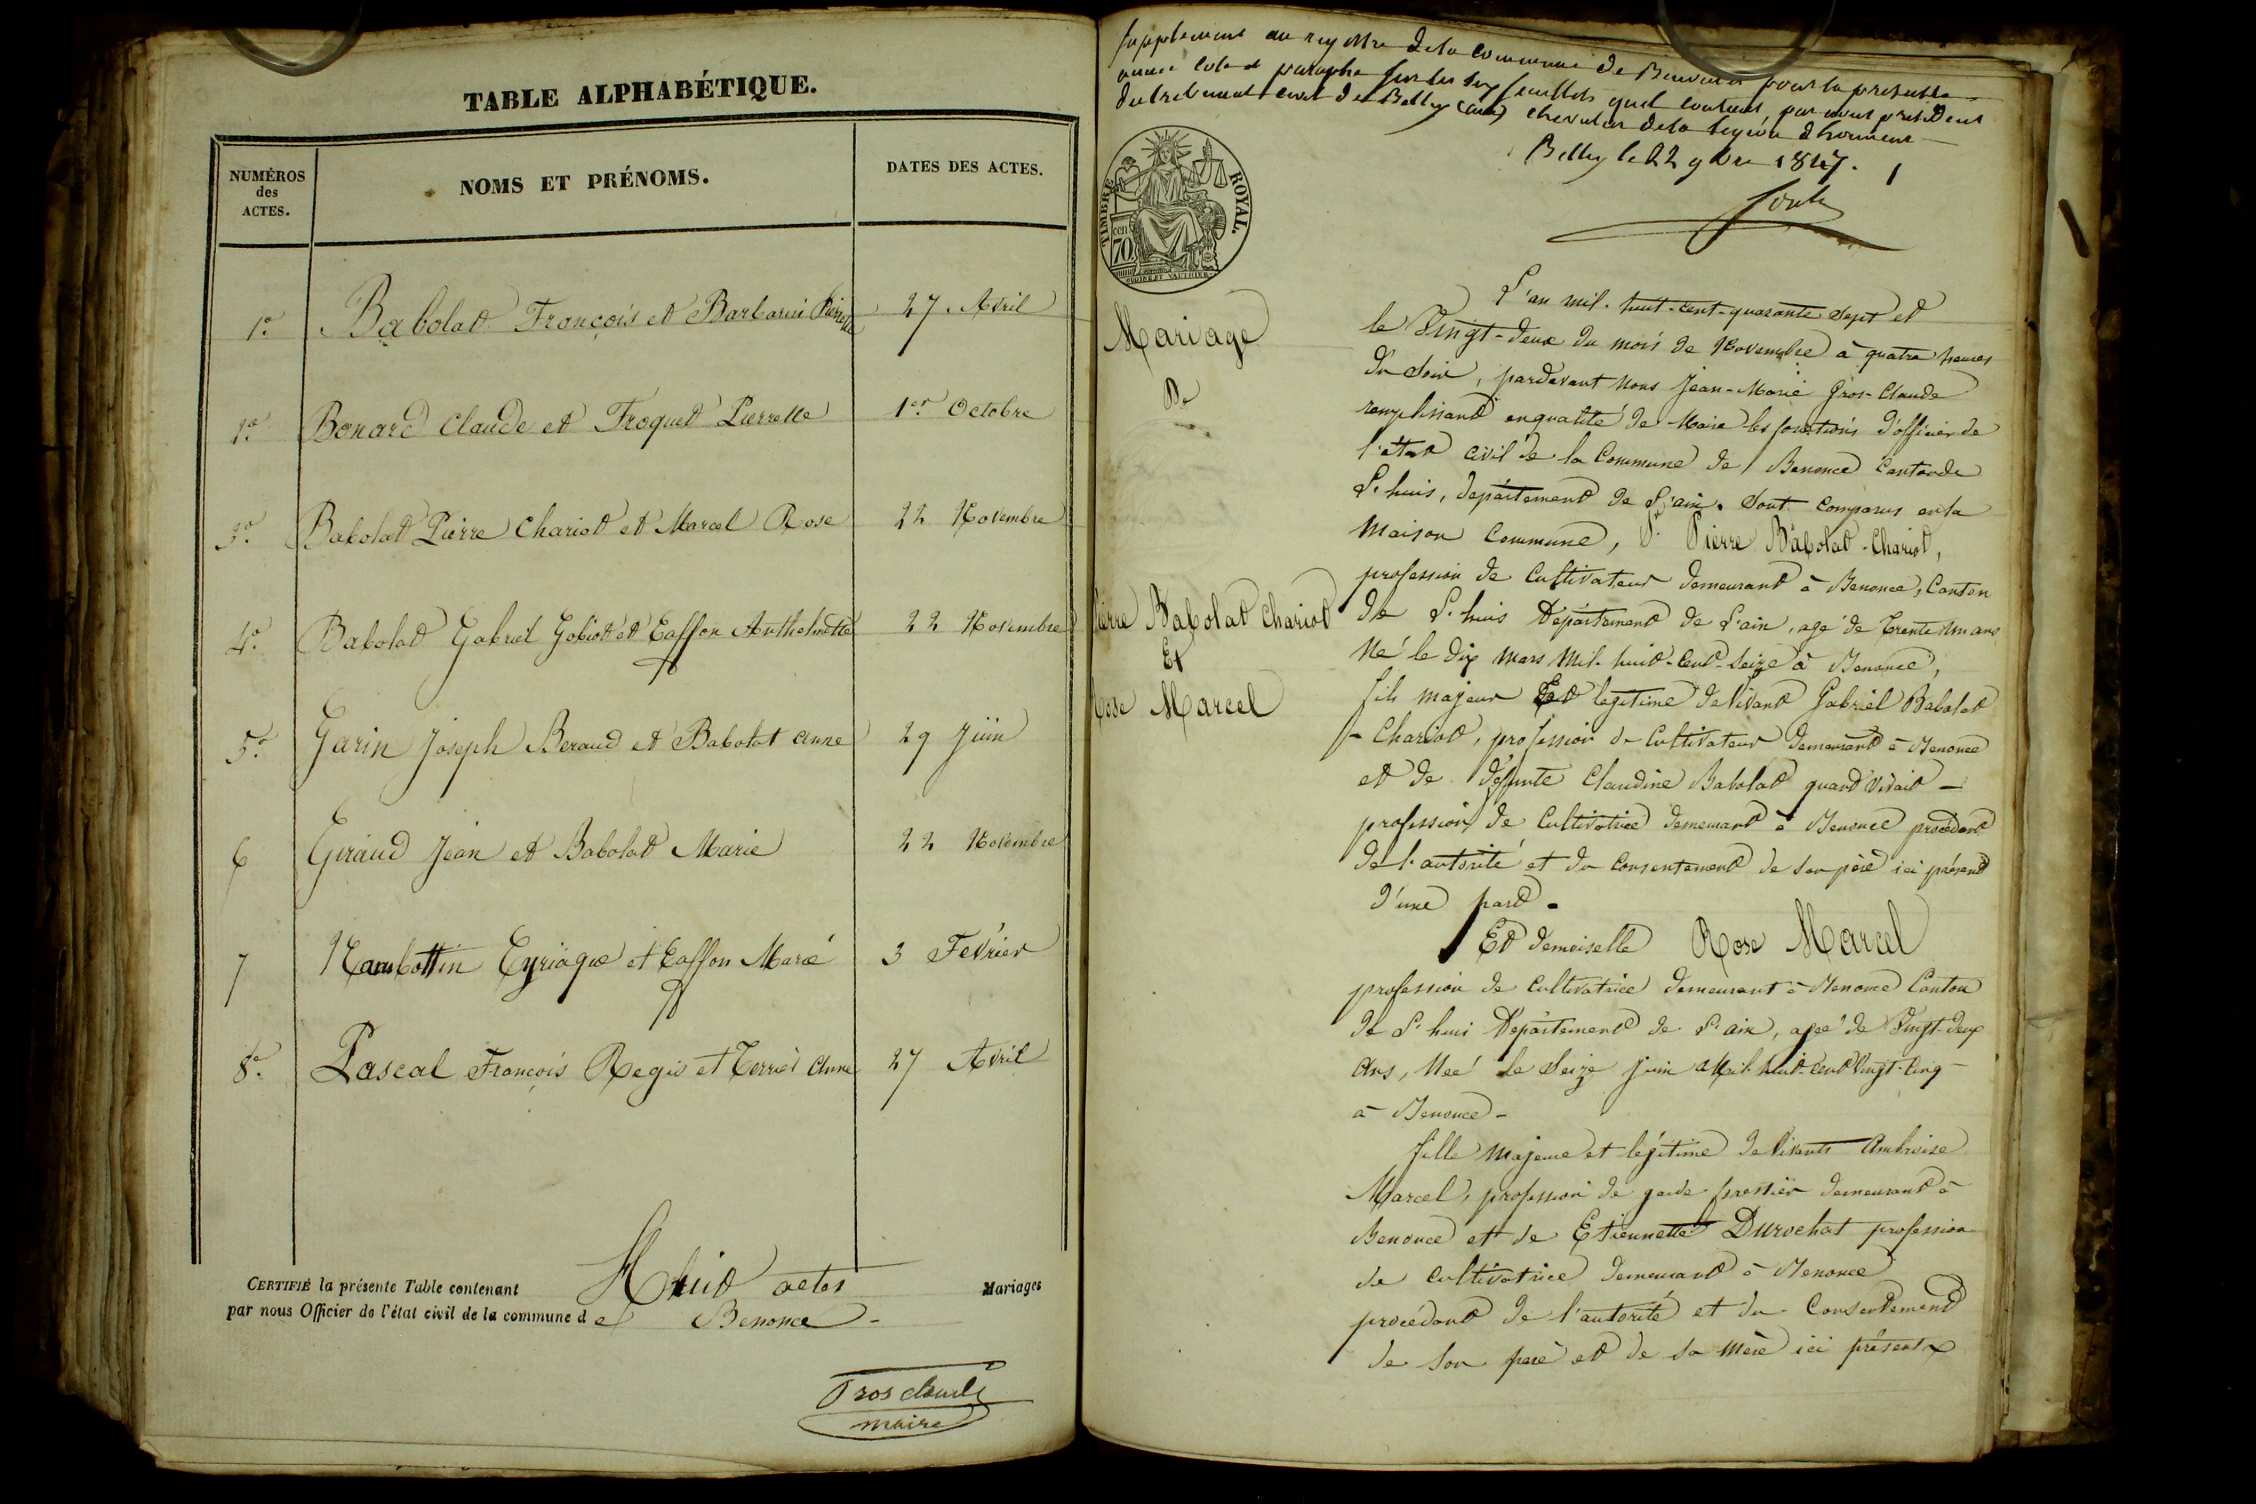 TABLE ALPHABÉTIQUE.
NUMÉROS
des
ACTES.
NOMS ET PRÉNOMS.
DATES DES ACTES.
1° Babolat François et Barbarin Pierrette 27 Avril
1° Bonard Claude et Froquet Pierrette 1er Octobre
3° Babolat Pierre Chariot et Marcel Rose 22 Novembre
4° Babolat Gabriel Gobiot et Caffon Anthelmette 22 Novembre
5° Garin Joseph Beraud et Babolat anne 29 Juin
6 Giraud Jean et Babolat Marie 22 Novembre
7 Nambottin Cyriaque et Caffon Marie 3 Février
8° Pascal François Regis et Terrier Anne 27 Avril
CERTIFIÉ la présente Table contenant huit actes Mariages
par nous Officier de l'état civil de la commune de Benonce
Gros claude
maire
Supplément au registre de la commune de Benonce pour la presente
année coté et paraphé sur les six feuillets qu'il contient, par nous président
du tribunal civil de Belley (ain) chevalier de la legion d'honneur
Belley le 22 9bre 1847.
TIMBRE ROYAL.
cen
70
L'an mil-huit-cent-quarante sept et
le Vingt-deux du mois de Novembre à quatre heures
du Soir, pardevant Nous Jean-Marie Gros-Claude
remplissant en qualité de Maire les fonctions d'officier de
l'état civil de la Commune de Benonce Canton de
L'huis, département de L'ain. Sont comparus en la
maison Commune, Sr Pierre Babolat-Chariot,
profession de Cultivateur demeurant à Benonce, Canton
de L'huis Département de L'ain, agé de Trente un ans
Né le dix mars mil-huit-cent-Seize à Benonce,
fils majeur Et légitime de Vivant Gabriel Babolat
-Chariot, profession de Cultivateur demeurant à Benonce
et de défunte Claudine Babolat quand vivait -
profession de Cultivatrice demeurant à Benonce procédant
de l'autorité et du Consentement de son père ici présent
d'une part.
Et demoiselle Rose Marcel
profession de Cultivatrice demeurant à Benonce Canton
de L'huis Département de L'ain, agée de Vingt-deux
Ans, Née le Seize Juin Mil-huit-cent Vingt-Cinq
à Benonce-
fille majeure et légitime de Vivants Ambroise
Marcel, profession de garde forestier demeurant à
Benonce et de Etiennette Durochat profession
de cultivatrice demeurant à Benonce
procédant de l'autorité et du Consentement
de son père et de sa mère ici présents
Mariage
De
Pierre Babolat Chariot
Et
Rose Marcel